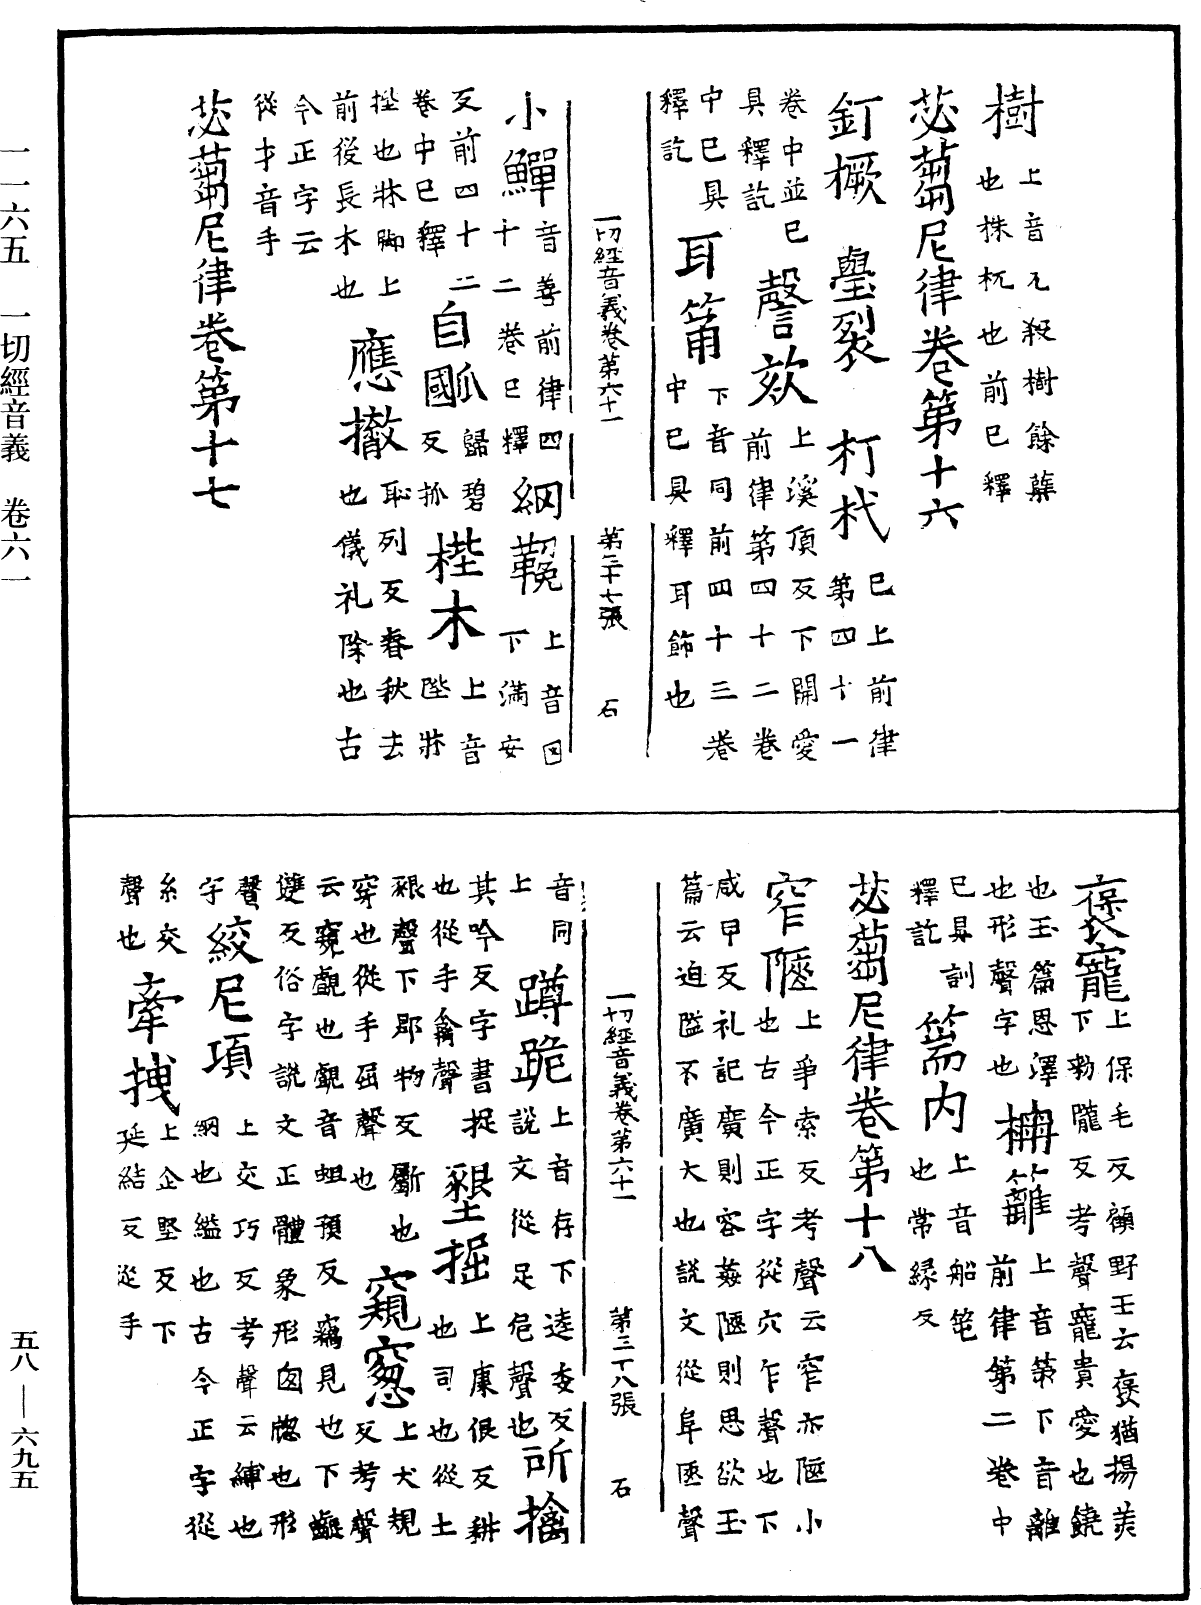 樹 上音兀殺樹餘蘖
也株杌也前已釋
苾蒭尼律卷第十六
釘橛 舋裂 朾杙 已上前律
第四十一
卷中並已
具釋訖 謦欬 上溪頂反下開愛
前律第四十二卷
中已具
釋訖 耳箾 下音同前四十三卷
中已具釋耳飾也
一切經音義卷第六十一 第三十七張 石
小鱓 音善前律四
十二卷已釋 網鞔 上音囚
下滿安
反前四十二
卷中已釋 自國 歸碧
反 桎木 上音
陛牀
也牀脚上
前後長木也 應撤 恥列反春秋去
也儀礼除也古
今正字云
從才音手
苾蒭尼律卷第十七
褒寵 上保毛反顧野王云褒猶揚美
下勑隴反考聲寵貴愛也饒
也玉篇恩澤
也形聲字也 籬 上音第下音離
前律第二卷中
已具訓
釋訖 篅内 上音船笔
也常緣反
苾蒭尼律卷第十八
窄陿 上爭索反考聲云窄亦陿小
也古今正字從穴乍聲也下
咸甲反礼記廣則容姦陿則思欲玉
篇云迫隘不廣大也說文從阜匧聲
一切經音義卷第六十一 第三十八張 石
上音同 蹲跪 上音存下逵委反
說文從足危聲也 所擒
其吟反字書捉
也從手禽聲 墾掘 上康佷反耕
也司也從土
豤聲下郡物反斸也
穿也從手屈聲也 窺窻 上犬規
反考聲
云窺覰也覰音蛆預反竊見也下
雙反俗字說文正體象形囪牕也形
聲字 絞尼項 上交巧反考聲云縛也
網也縊也古今正字從
糸交
聲也 牽拽 上企堅反下
延結反從手
一一六五 一切經音義 卷六一
五八——六九五